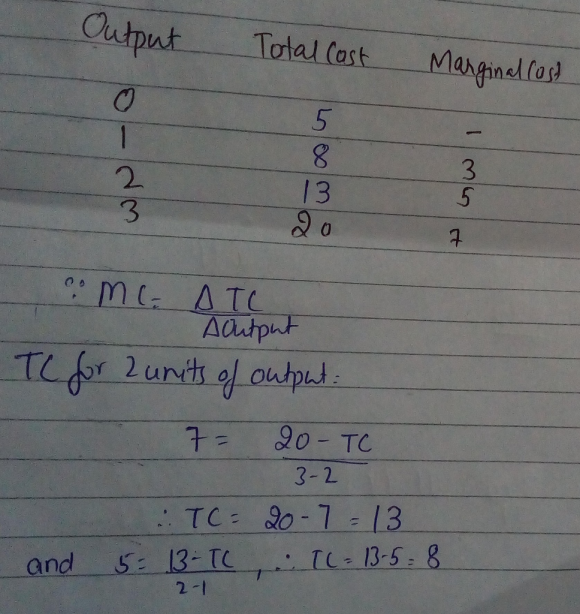 Output Total Cost Marginal Cost
0 5 -
1 8 3
2 13 5
3 20 7
∵ MC = ΔTC / ΔOutput
TC for 2 units of output:
7 = 20 - TC / 3-2
∴ TC = 20 - 7 = 13
and 5 = 13 - TC / 2-1 , ∴ TC = 13-5 = 8